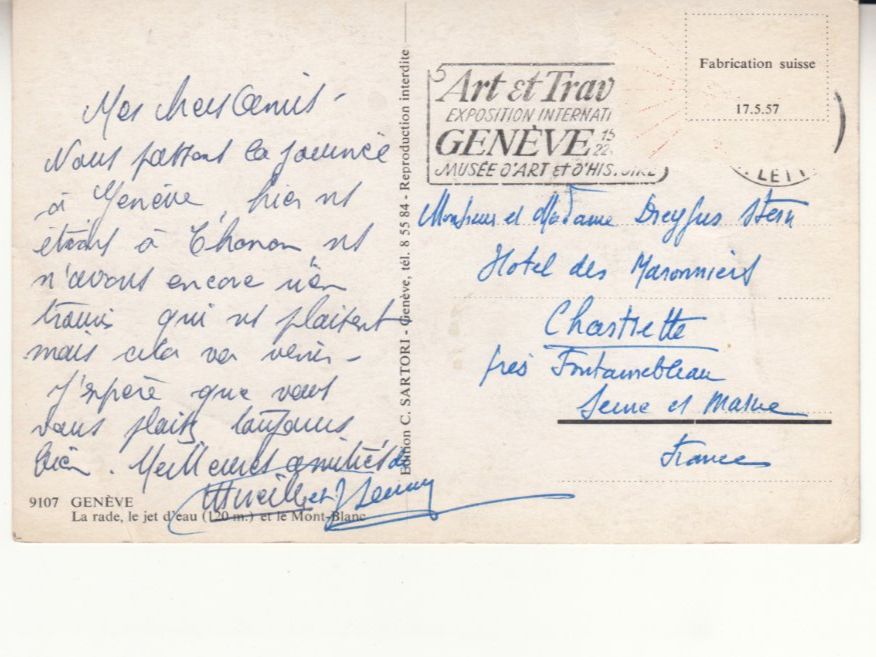 Mes chers Amis -
Nous passons la journée
à Genève, hier ns
étions à Thonon ns
n'avons encore rien
trouvé qui ns plaisent
mais cela va venir -
J'espère que vous
vous plaisez toujours
bien. Meilleures amitiés de
Mireille et
9107 GENÈVE
La rade, le jet d'eau (120 m.) et le Mont-Blanc
Edition C. SARTORI - Genève, tél. 8 55 84 - Reproduction interdite
5
Art et Trav
EXPOSITION INTERNATI
GENÈVE 15
22
MUSÉE D'ART ET D'HISTOIRE
LETT
Fabrication suisse
17.5.57
Monsieur et Madame Dreyfus Stern
Hotel des Maronniers
Chartrette
près Fontainebleau
Seine et Marne
France